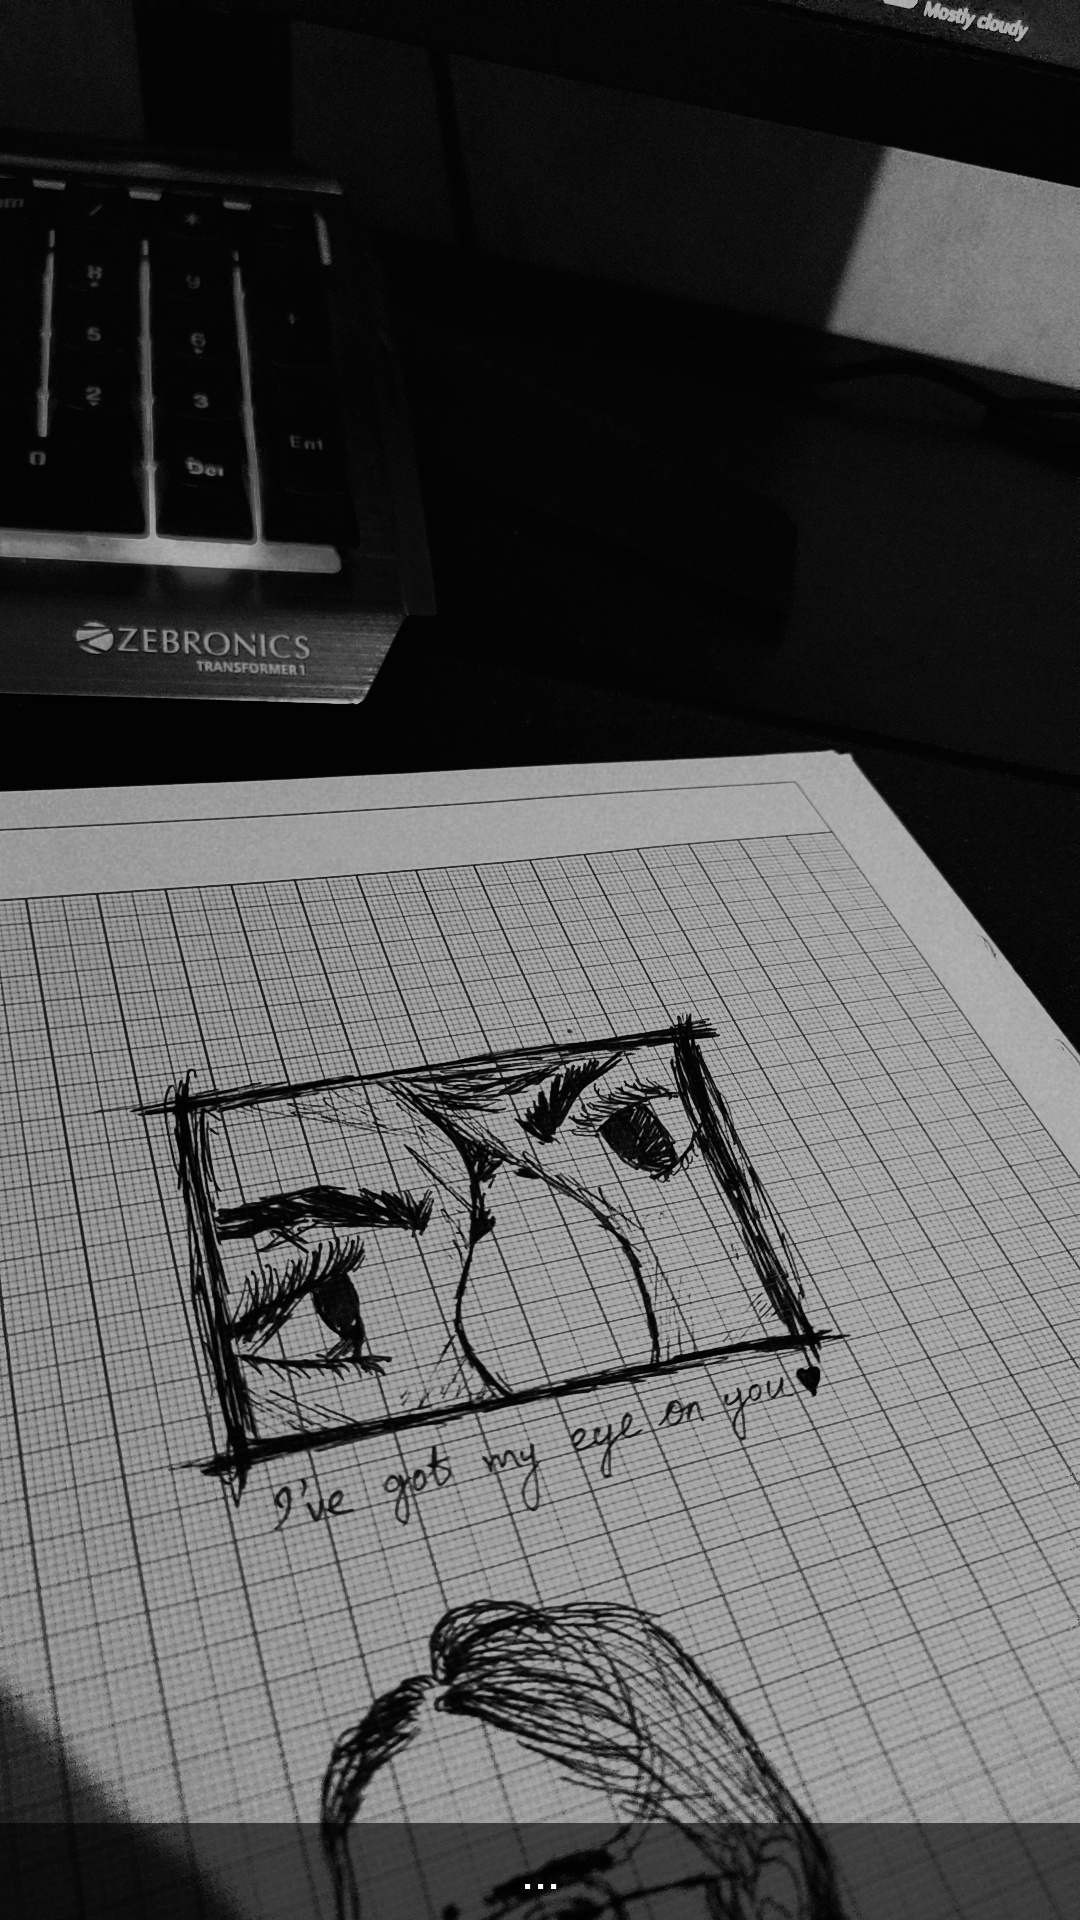 Mostly cloudy
/ *
8 9
+
5 6
2 3
Ent
0 Del
ZEBRONICS
TRANSFORMER 1
I've got my eye on you♥